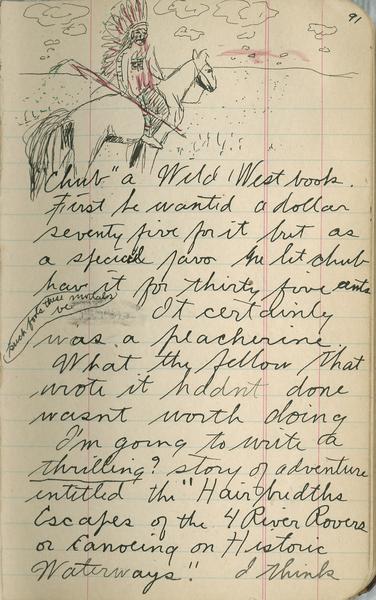 91
Chub" a Wild West book.
First he wantid a dollar
seventy five for it but as
a special favor he let chub
hav it for thirty five cents
such fools these mortals be
It certainly
was a peacherine.
What the fellow that
wrote it hadnt done
wasnt worth doing
I'm going to write a
thrilling? story of adventure
entitled the "Hairbredths
Escapes of the 4 River Rovers
or Canoeing on Historic
Waterways". I think